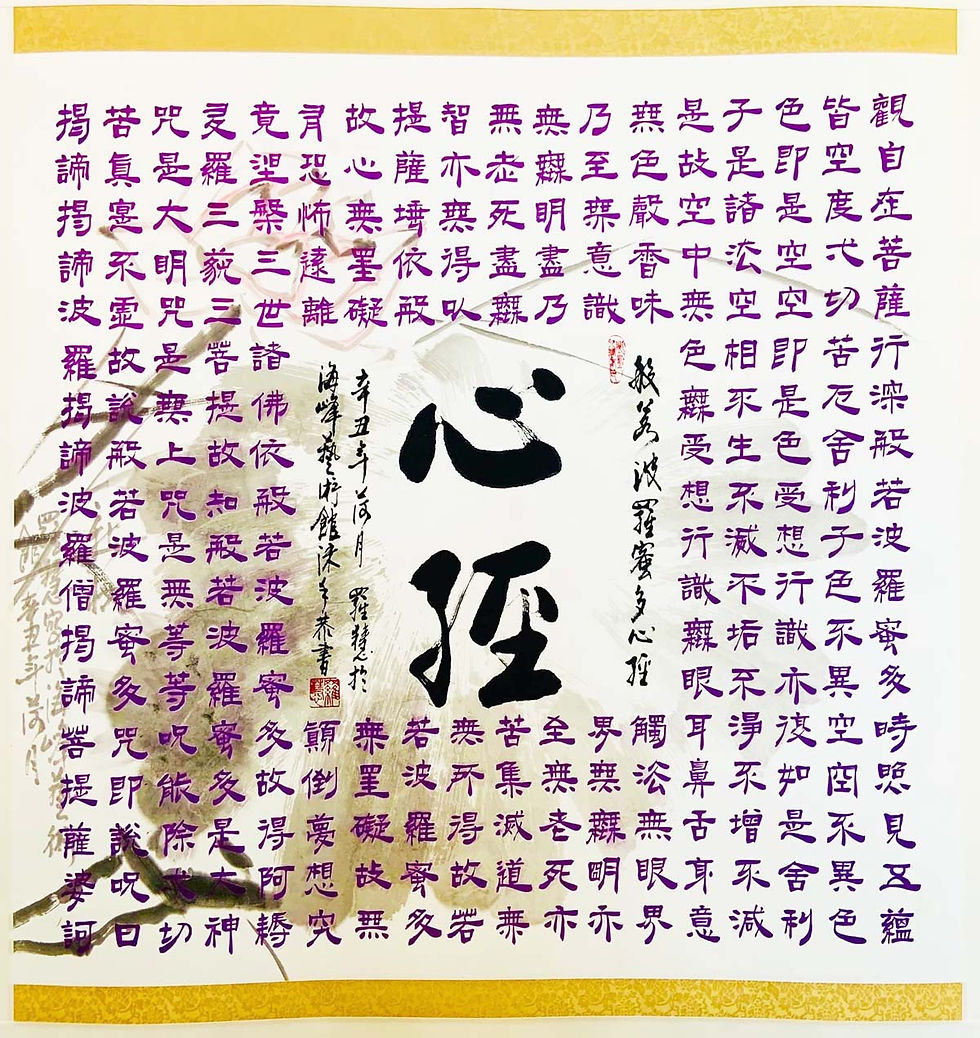 觀自在菩薩行深般若波羅蜜多時照見五蘊
皆空度弌切苦厄舍利子色不異空空不異色
色即是空空即是色受想行識亦復如是舍利
子是諸法空相不生不滅不垢不淨不增不減
是故空中無色無受想行識無眼耳鼻舌身意
無色聲香味觸法無眼界
乃至無意識界無無明亦
無無明盡乃至無老死亦
無老死盡無苦集滅道無
智亦無得以無所得故菩
提薩埵依般若波羅蜜多
故心無罣礙無罣礙故無
有恐怖遠離顛倒夢想究
竟涅槃三世諸佛依般若波羅蜜多故得阿耨
多羅三藐三菩提故知般若波羅蜜多是大神
咒是大明咒是無上咒是無等等呪能除弌切
苦真實不虛故說般若波羅蜜多咒即說呪曰
揭諦揭諦波羅揭諦波羅僧揭諦菩提薩婆訶
般若波羅蜜多心經
心經
辛丑年荷月 羅慧於
海峰藝術館沐手恭書
辛丑年荷月